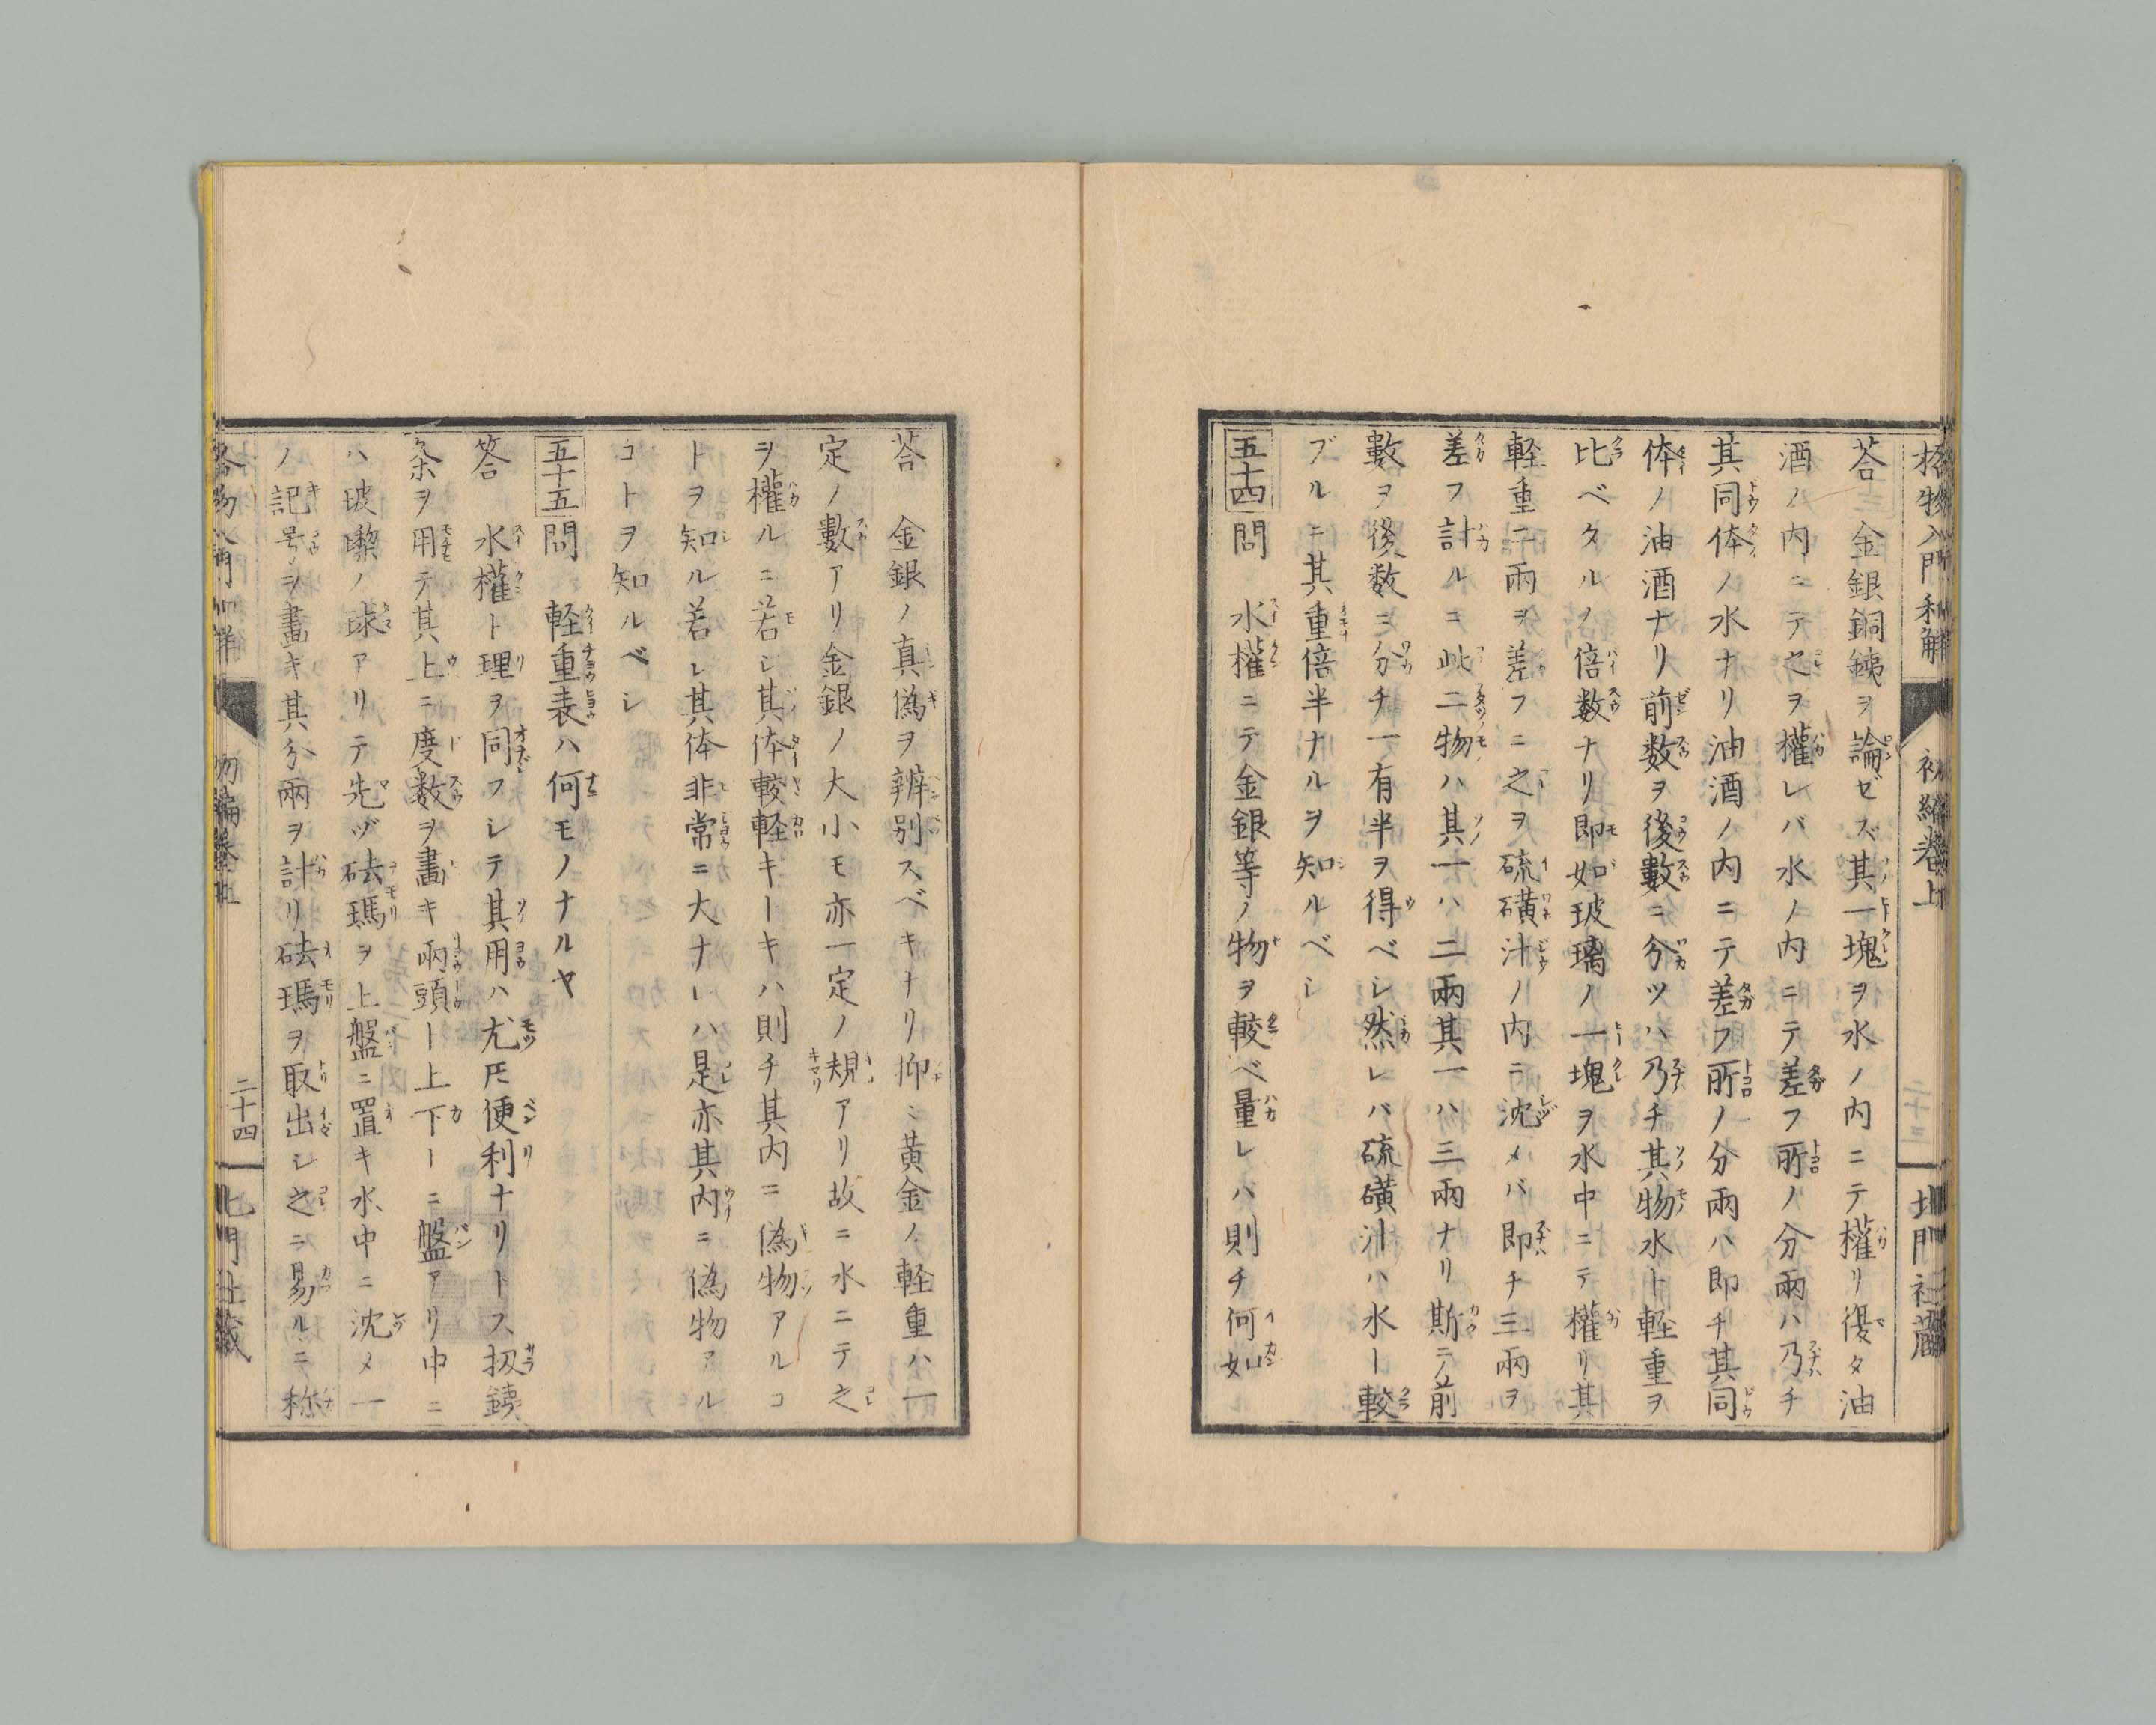 格物入門和解
初編卷上
二十三
北門社藏
荅 金銀銅銕ヲ論ゼズ其一塊ヲ水ノ内ニテ權リ復タ油
酒ノ内ニテ之ヲ權レバ水ノ内ニテ差フ所ノ分兩ハ乃チ
其同体ノ水ナリ油酒ノ内ニテ差フ所ノ分兩ハ即チ其同
体ノ油酒ナリ前数ヲ後數ニ分ツハ乃チ其物水ト軽重ヲ
比ベタルノ倍数ナリ即如玻璃ノ一塊ヲ水中ニテ權リ其
軽重二兩ヲ差フニ之ヲ硫磺汁ノ内ニ沈メバ即チ三兩ヲ
差フ計ルニ此二物ハ其一ハ二兩其一ハ三兩ナリ斯ニ前
數ヲ後数ニ分チ一有半ヲ得ベシ然レバ硫磺汁ハ水ー較
ブルニ其重倍半ナルヲ知ルベシ
五十四 問 水權ニテ金銀等ノ物ヲ較ベ量レバ則チ何如
荅 金銀ノ真偽ヲ辨別スベキナリ抑〻黃金ノ軽重ハ一
定ノ數アリ金銀ノ大小モ亦一定ノ規アリ故ニ水ニテ之
ヲ權ルニ若シ其体較軽キーキハ則チ其内ニ偽物アルコ
トヲ知ル若レ其体非常ニ大ナレハ是亦其内ニ偽物アル
コトヲ知ルベシ
五十五 問 軽重表ハ何モノナルヤ
答 水權ト理ヲ同フレテ其用ハ尤𪜈便利ナリトス扨銕
条ヲ用テ其上ニ度数ヲ畫キ兩頭ー上下ーニ盤アリ中ニ
ハ玻瓈ノ球アリテ先ヅ砝瑪ヲ上盤ニ置キ水中ニ沈メ一
ノ記号ヲ畫キ其分兩ヲ計リ砝瑪ヲ取出シ之ニ易ルニ称
二十四
北門社藏